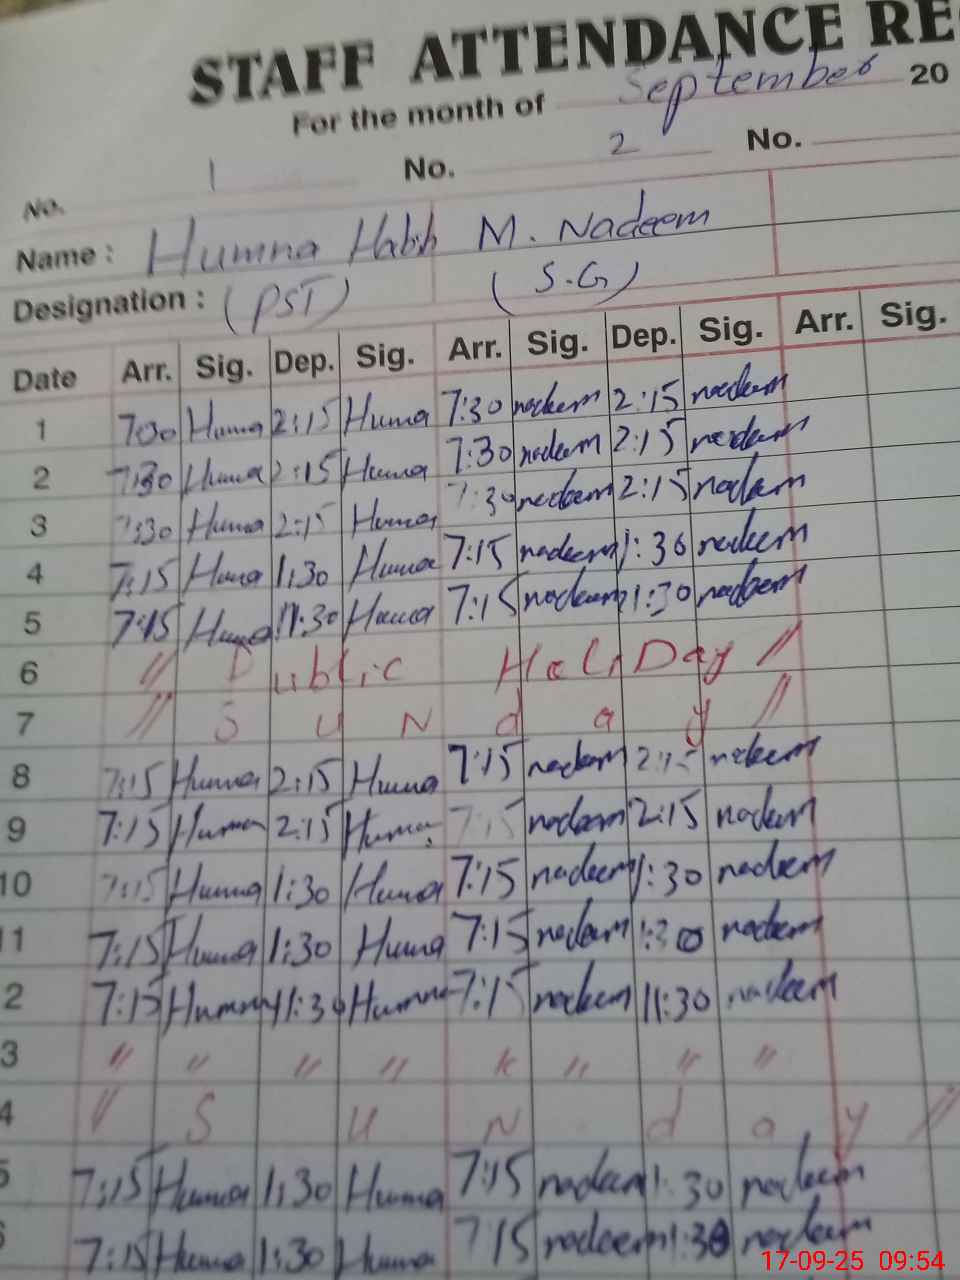 STAFF ATTENDANCE RE
For the month of September 20
No. 1 No. 2 No.
Name : Humna Habib M. Nadeem
Designation : (PST) (S.G)
Date Arr. Sig. Dep. Sig. Arr. Sig. Dep. Sig. Arr. Sig.
1 Huma 2:15 Huma 7:30 nadeem 2:15 nadeem
2 7:30 Huma 2:15 Huma 7:30 nadeem 2:15 nadeem
3 7:30 Huma 2:15 Huma 7:30 nadeem 2:15 nadeem
4 7:15 Huma 1:30 Huma 7:15 nadeem 1:30 nadeem
5 7:15 Huma 11:30 Huma 7:15 nadeem 11:30 nadeem
6 " Public Holi Day "
7 " S u N d a y "
8 7:15 Humna 2:15 Humna 7:15 nadeem 2:15 nadeem
9 7:15 Humna 2:15 Humna 7:15 nadeem 2:15 nadeem
10 7:15 Humna 1:30 Humna 7:15 nadeem 1:30 nadeem
11 7:15 Humna 1:30 Humna 7:15 nadeem 1:30 nadeem
2 7:15 Humna 11:30 Humna 7:15 nadeem 11:30 nadeem
3 " " " " " " "
4 " S u N d a y "
5 7:15 Humna 1:30 Humna 7:15 nadeem 1:30 nadeem
6 7:15 Humna 1:30 Humna 7:15 nadeem 1:30 nadeem
17-09-25 09:54